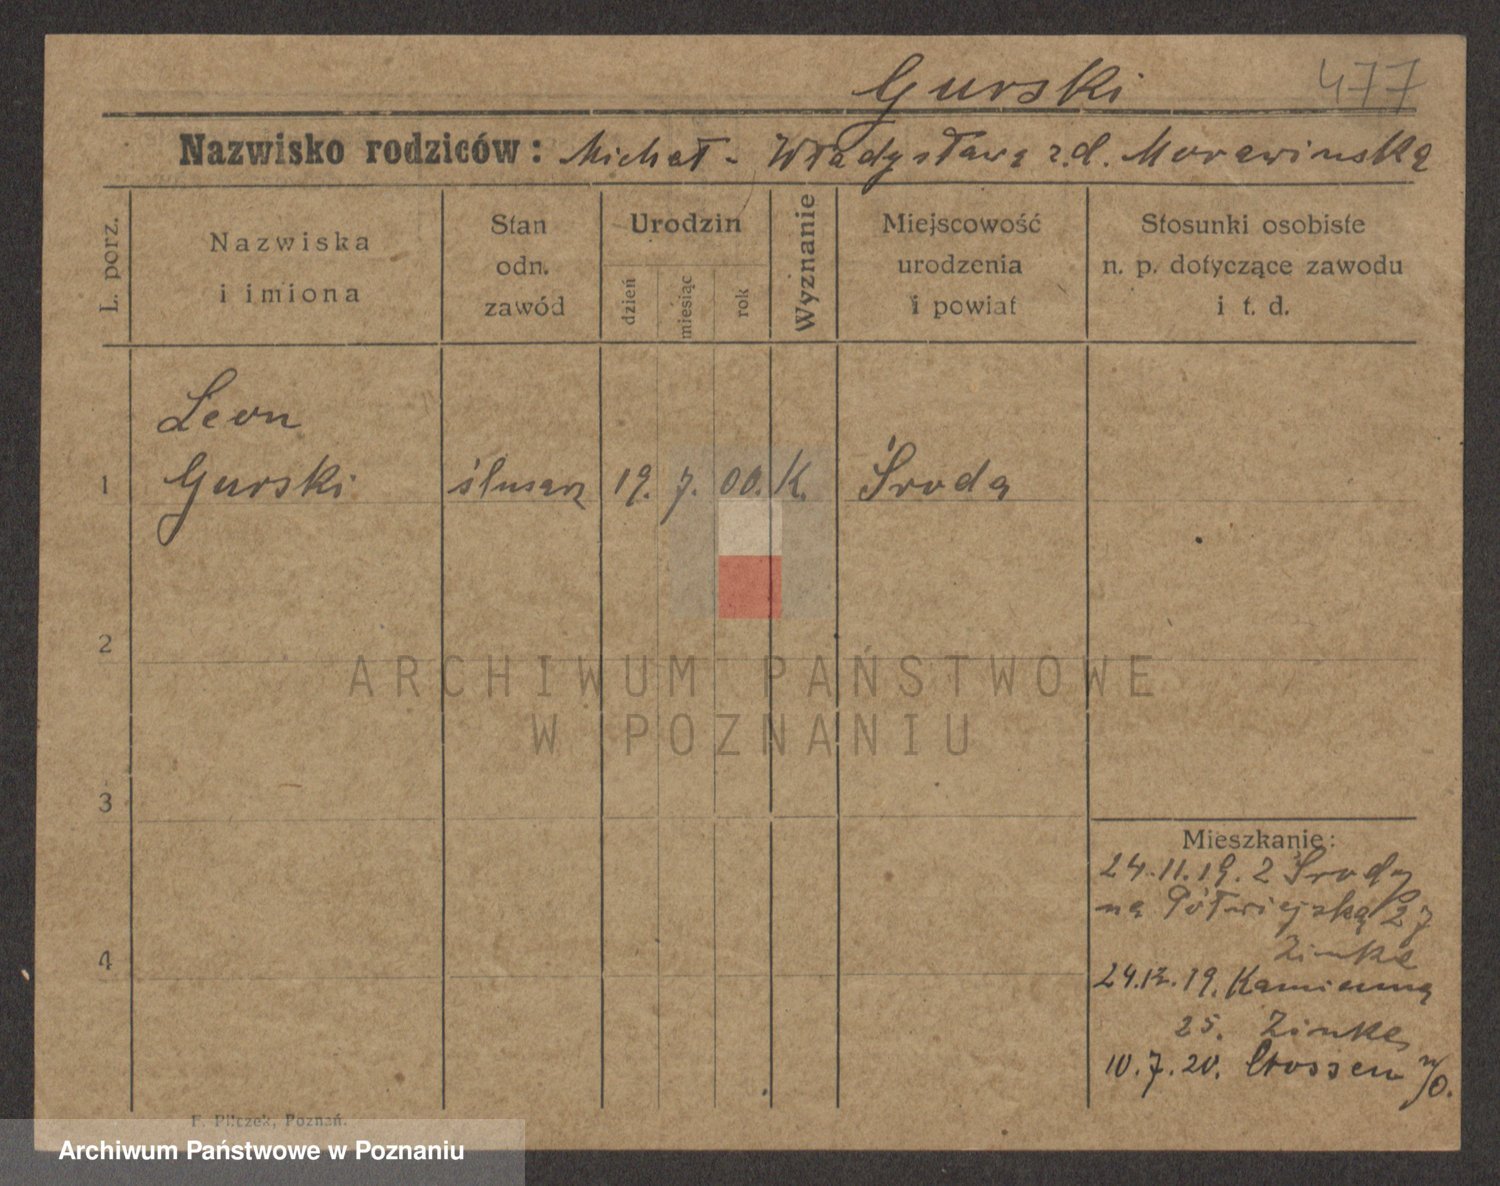 Gurski 477
Nazwisko rodziców: Michał - Władysława z.d. Morawińska
L. porz.
Nazwiska
i imiona
Stan
odn.
zawód
Urodzin
dzień
miesiąc
rok
Wyznanie
Miejscowość
urodzenia
i powiat
Stosunki osobiste
n. p. dotyczące zawodu
i t. d.
Leon
1 Gurski ślusarz 19. 7. 00. K. Środa
2
ARCHIWUM PAŃSTWOWE
W POZNANIU
3
Mieszkanie:
24.11.19. z Środy
na Półwiejską 27
Zinke
4
24.12.19. Kamienna
25. Zinke
10.7.20. Crossen n/O.
F. Pilczek, Poznań.
Archiwum Państwowe w Poznaniu